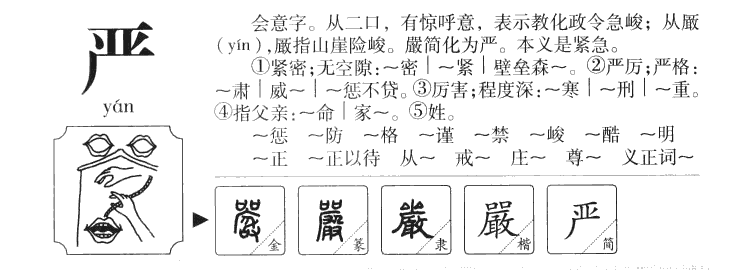 严
yán
会意字。从二口，有惊呼意，表示教化政令急峻；从厰
（yín），厰指山崖险峻。嚴简化为严。本义是紧急。
①紧密；无空隙：～密｜～紧｜壁垒森～。②严厉；严格：
～肃｜威～｜～惩不贷。③厉害；程度深：～寒｜～刑｜～重。
④指父亲：～命｜家～。⑤姓。
～惩 ～防 ～格 ～谨 ～禁 ～峻 ～酷 ～明
～正 ～正以待 从～ 戒～ 庄～ 尊～ 义正词～
金 篆 嚴 隶 嚴 楷 严 简